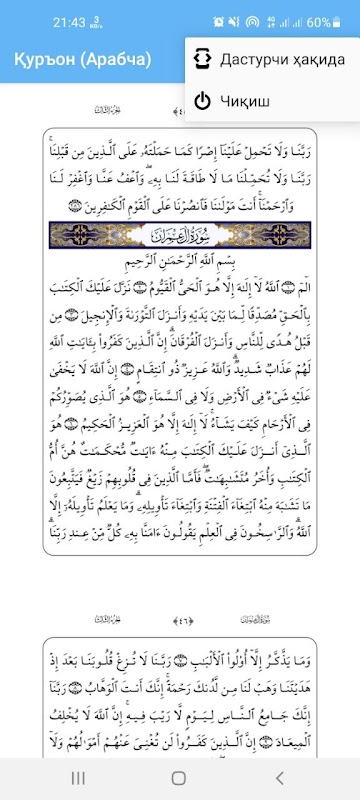 21:43 3 KB/s 60%
Қуръон (Арабча)
Дастурчи ҳақида
Чиқиш
رَبَّنَا وَلَا تَحْمِلْ عَلَيْنَآ إِصْرًا كَمَا حَمَلْتَهُۥ عَلَى ٱلَّذِينَ مِن قَبْلِنَا ۚ
رَبَّنَا وَلَا تُحَمِّلْنَا مَا لَا طَاقَةَ لَنَا بِهِۦ ۖ وَٱعْفُ عَنَّا وَٱغْفِرْ لَنَا
وَٱرْحَمْنَآ ۚ أَنتَ مَوْلَىٰنَا فَٱنصُرْنَا عَلَى ٱلْقَوْمِ ٱلْكَٰفِرِينَ
سُورَةُ آلِ عِمْرَانَ
بِسْمِ ٱللَّهِ ٱلرَّحْمَٰنِ ٱلرَّحِيمِ
الٓمٓ ٱللَّهُ لَآ إِلَٰهَ إِلَّا هُوَ ٱلْحَىُّ ٱلْقَيُّومُ نَزَّلَ عَلَيْكَ ٱلْكِتَٰبَ
بِٱلْحَقِّ مُصَدِّقًا لِّمَا بَيْنَ يَدَيْهِ وَأَنزَلَ ٱلتَّوْرَىٰةَ وَٱلْإِنجِيلَ مِن
قَبْلُ هُدًى لِّلنَّاسِ وَأَنزَلَ ٱلْفُرْقَانَ ۗ إِنَّ ٱلَّذِينَ كَفَرُوا۟ بِـَٔايَٰتِ ٱللَّهِ
لَهُمْ عَذَابٌ شَدِيدٌ ۗ وَٱللَّهُ عَزِيزٌ ذُو ٱنتِقَامٍ إِنَّ ٱللَّهَ لَا يَخْفَىٰ
عَلَيْهِ شَىْءٌ فِى ٱلْأَرْضِ وَلَا فِى ٱلسَّمَآءِ هُوَ ٱلَّذِى يُصَوِّرُكُمْ
فِى ٱلْأَرْحَامِ كَيْفَ يَشَآءُ ۚ لَآ إِلَٰهَ إِلَّا هُوَ ٱلْعَزِيزُ ٱلْحَكِيمُ هُوَ
ٱلَّذِىٓ أَنزَلَ عَلَيْكَ ٱلْكِتَٰبَ مِنْهُ ءَايَٰتٌ مُّحْكَمَٰتٌ هُنَّ أُمُّ
ٱلْكِتَٰبِ وَأُخَرُ مُتَشَٰبِهَٰتٌ ۖ فَأَمَّا ٱلَّذِينَ فِى قُلُوبِهِمْ زَيْغٌ فَيَتَّبِعُونَ
مَا تَشَٰبَهَ مِنْهُ ٱبْتِغَآءَ ٱلْفِتْنَةِ وَٱبْتِغَآءَ تَأْوِيلِهِۦ ۗ وَمَا يَعْلَمُ تَأْوِيلَهُۥٓ إِلَّا
ٱللَّهُ ۗ وَٱلرَّٰسِخُونَ فِى ٱلْعِلْمِ يَقُولُونَ ءَامَنَّا بِهِۦ كُلٌّ مِّنْ عِندِ رَبِّنَا ۗ
سُورَةُ آلِ عِمْرَانَ ٤٦ الجزء الثالث
وَمَا يَذَّكَّرُ إِلَّآ أُو۟لُوا۟ ٱلْأَلْبَٰبِ رَبَّنَا لَا تُزِغْ قُلُوبَنَا بَعْدَ إِذْ
هَدَيْتَنَا وَهَبْ لَنَا مِن لَّدُنكَ رَحْمَةً ۚ إِنَّكَ أَنتَ ٱلْوَهَّابُ رَبَّنَآ
إِنَّكَ جَامِعُ ٱلنَّاسِ لِيَوْمٍ لَّا رَيْبَ فِيهِ ۚ إِنَّ ٱللَّهَ لَا يُخْلِفُ
ٱلْمِيعَادَ إِنَّ ٱلَّذِينَ كَفَرُوا۟ لَن تُغْنِىَ عَنْهُمْ أَمْوَٰلُهُمْ وَلَآ